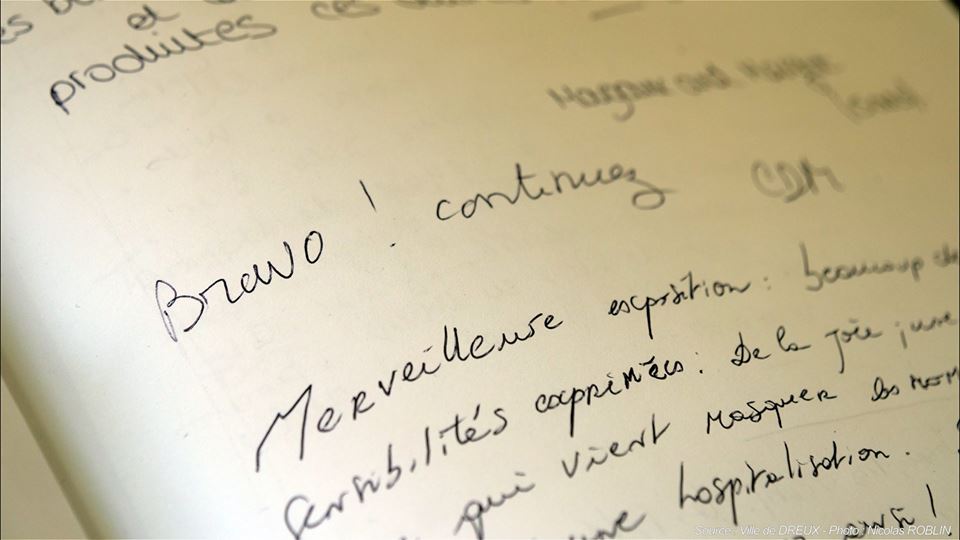 et
produites ces
Bravo ! continuez CDM
Merveilleuse exposition : beaucoup de
sensibilités exprimées. De la joie, une
qui vient masquer les
une hospitalisation.
Source : Ville de DREUX - Photo : Nicolas ROBLIN